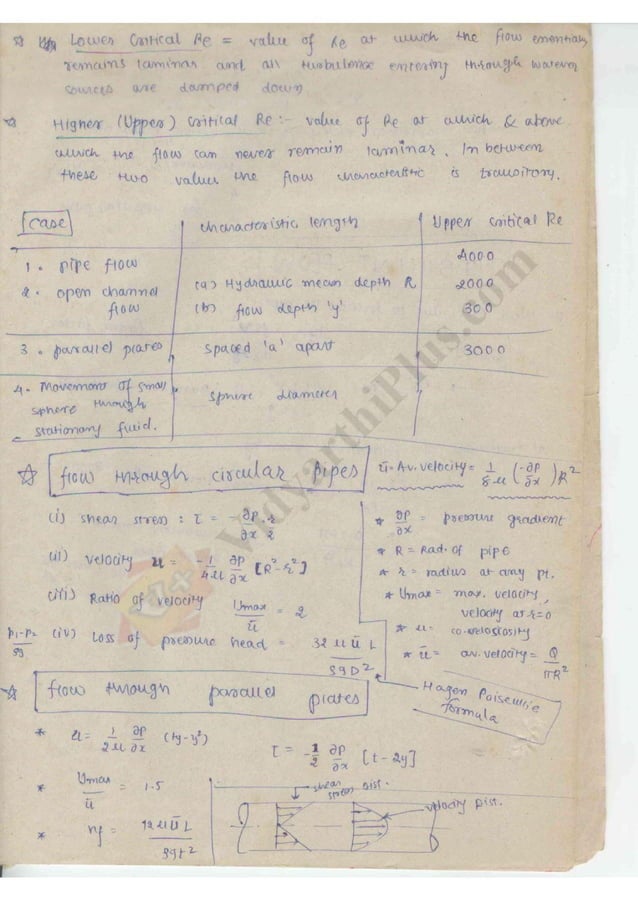 Lower Critical Re = value of Re at which the flow essentially
remains laminar and all turbulence entering through whatever
sources are damped down
Higher (Upper) Critical Re :- value of Re at which & above
which the flow can never remain laminar. In between
these two values the flow characteristic is transitory.
Case | Characteristic length | Upper Critical Re
1. pipe flow | 4000
2. open channel flow | (a) Hydraulic mean depth R | 2000
(b) flow depth 'y' | 300
3. parallel plates | spaced 'a' apart | 3000
4. Movement of small sphere through stationary fluid. | sphere diameter
flow through circular pipes
ū = Av. velocity = 1/8μ (-∂P/∂x) R²
(i) shear stress : τ = -∂P/∂x · r/2
(ii) velocity u = -1/4μ ∂P/∂x [R²-r²]
(iii) Ratio of velocity Umax/ū = 2
P1-P2/ρg (iv) Loss of pressure head = 32μūL/ρgD²
* ∂P/∂x = pressure gradient
* R = Rad. of pipe
* r = radius at any pt.
* Umax = max. velocity,
velocity at r=0
* μ = co-velocosity
* ū = av. velocity = Q/πR²
Hagen Poiseuille
formula
flow through parallel
plates
* u = 1/2μ ∂P/∂x (ty-y²)
τ = -1/2 ∂P/∂x [t-2y]
* Umax/ū = 1.5
* hf = 12μūL/ρgt²
shear
stress Dist.
velocity Dist.
VidyarthiPlus.com